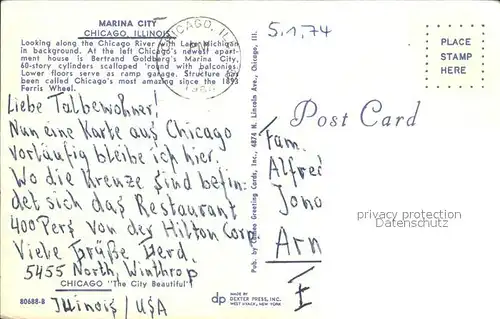 MARINA CITY
CHICAGO, ILLINOIS
Looking along the Chicago River with Lake Michigan
in background. At the left Chicago's newest apart-
ment house is Bertrand Goldberg's Marina City,
60-story cylinders scalloped round with balconies.
Lower floors serve as ramp garage. Structure has
been called Chicago's most amazing since the 1893
Ferris Wheel.
CHICAGO, ILL
5.1.74
PLACE
STAMP
HERE
Post Card
Liebe Talbewohner!
Nun eine Karte aus Chicago
Vorläufig bleibe ich hier.
Wo die Kreuze sind befin=
det sich das Restaurant
400 Pers von der Hilton Corp.
Viele Grüße Gerd.
5455 North, Winthrop
CHICAGO "The City Beautiful"
Illinois / USA
80688-B
Pub. by Cameo Greeting Cards, Inc., 4874 N. Lincoln Ave., Chicago, Ill.
Fam.
Alfred
Jono
Arn
I
privacy protection
Datenschutz
dp
MADE BY
DEXTER PRESS, INC.
WEST NYACK, NEW YORK